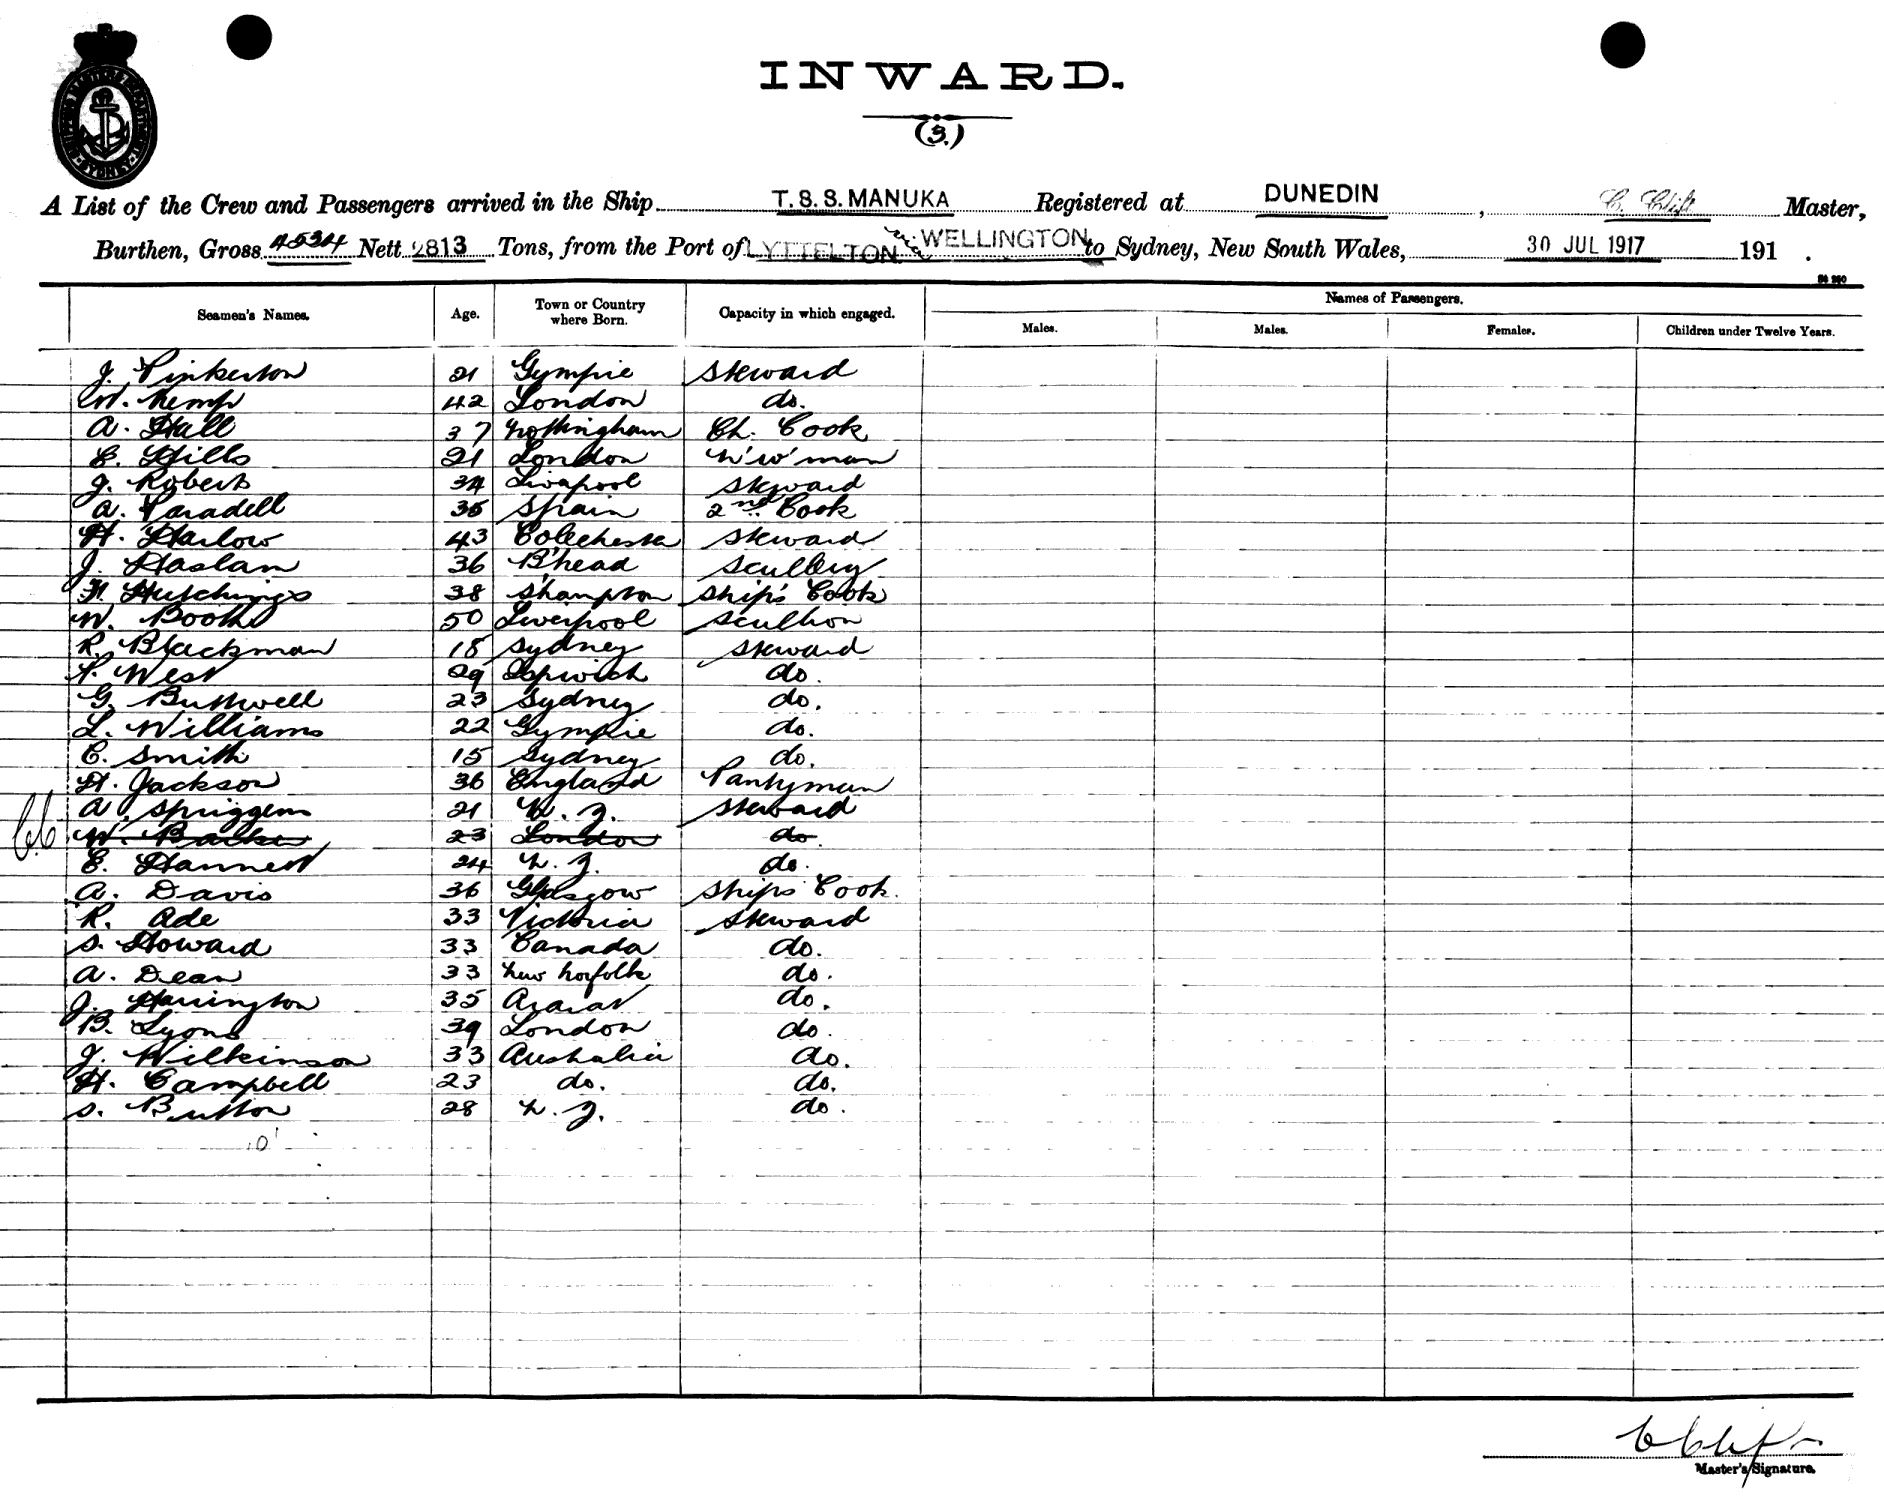 SHIPPING MASTERS DEPARTMENT
SYDNEY
INWARD.
(3.)
A List of the Crew and Passengers arrived in the Ship T.S.S. MANUKA Registered at DUNEDIN, C. Clift Master,
Burthen, Gross 4534 Nett 2813 Tons, from the Port of LYTTELTON via WELLINGTON to Sydney, New South Wales, 30 JUL 1917 191 .
Names of Passengers.
Seamen's Names. Age. Town or Country where Born. Capacity in which engaged. Males. Males. Females. Children under Twelve Years.
J. Pinkerton 21 Gympie Steward
W. Kemp 42 London do.
A. Hall 37 Nottingham Ch. Cook
E. Hills 21 London N'W'man
J. Roberts 34 Liverpool Steward
A. Paradell 35 Spain 2nd Cook
H. Harlow 43 Colechester Steward
J. Haslam 36 B'head Scullery
Hutchings 38 S'hampton Ship's Cook
W. Booth 50 Liverpool Scullion
R. Blackman 18 Sydney Steward
P. West 29 Ipswich do.
G. Buthwell 23 Sydney do.
L. Williams 22 Gympie do.
C. Smith 15 Sydney do.
H. Jackson 36 England Pantryman
A. Spriggens 21 N.Z. Steward
W. Barker 23 London do.
E. Hannett 24 N.Z. do.
A. Davis 36 Glasgow Ships Cook.
R. Ade 33 Victoria Steward
S. Howard 33 Canada do.
A. Dean 33 New Norfolk do.
J. Harrington 35 Ararat do.
B. Lyons 39 London do.
J. Wilkinson 33 Australia do.
H. Campbell 23 do. do.
S. Button 28 N.Z. do.
C Clift
Master's Signature.